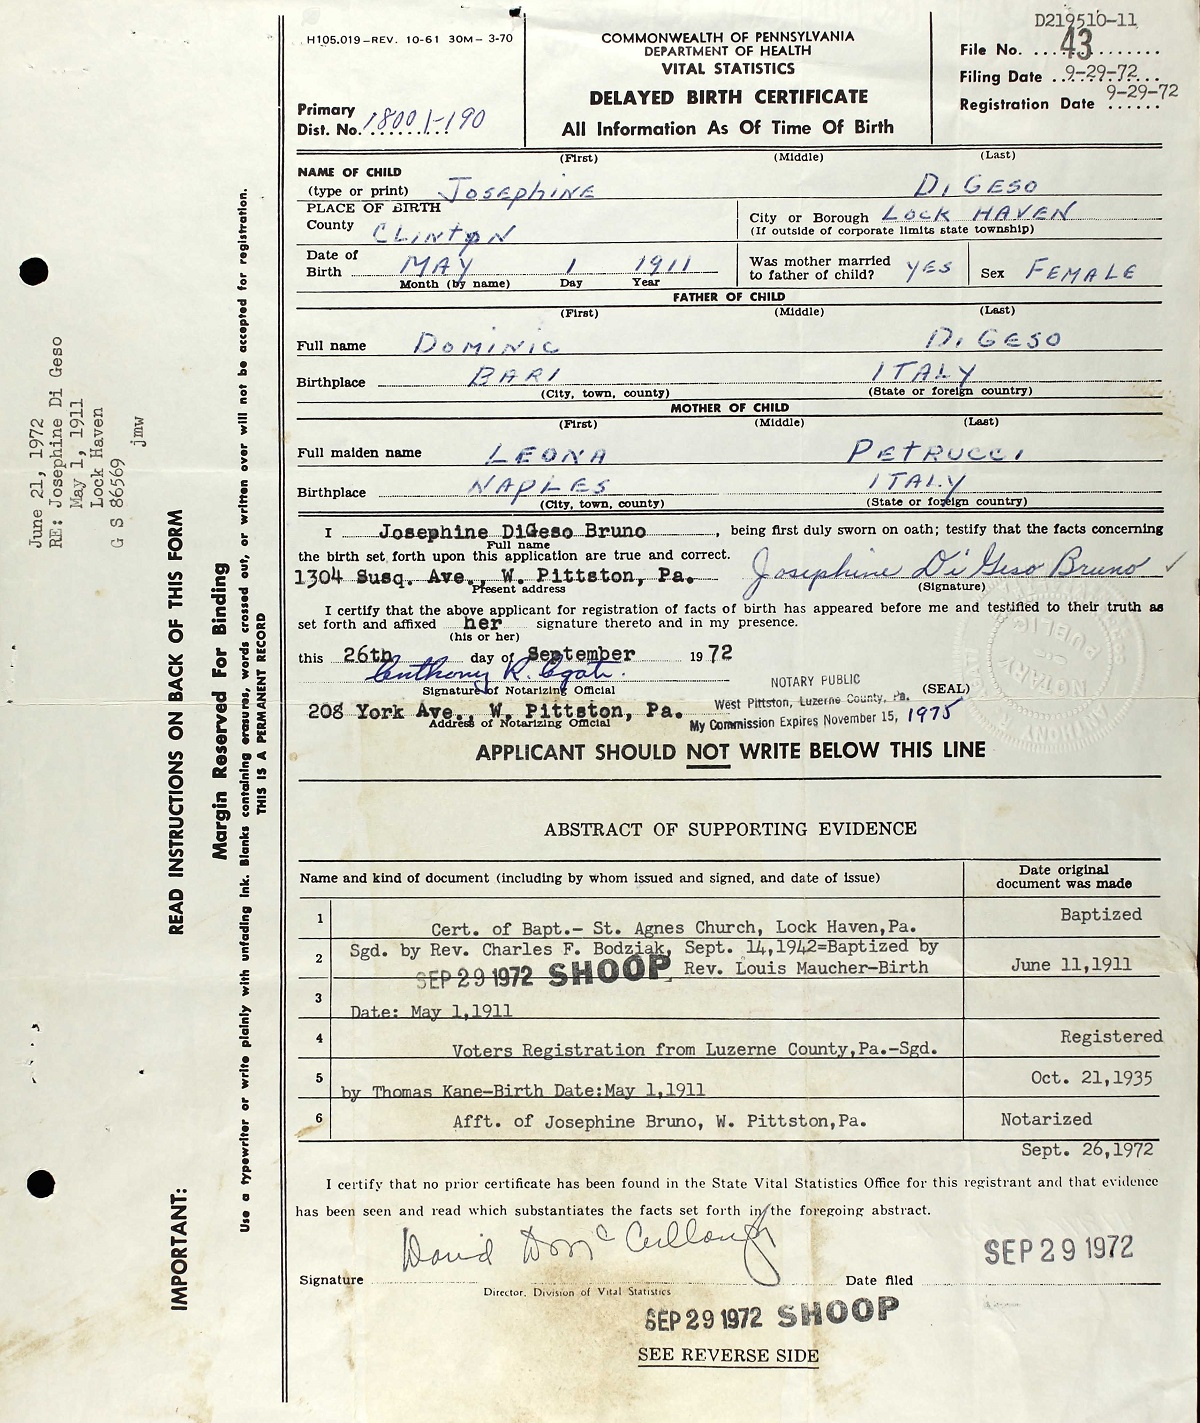 H105.019-REV. 10-61 30M- 3-70
COMMONWEALTH OF PENNSYLVANIA
DEPARTMENT OF HEALTH
VITAL STATISTICS
DELAYED BIRTH CERTIFICATE
All Information As Of Time Of Birth
Primary
Dist. No. 18001-190
D219510-11
File No. 43
Filing Date 9-29-72
Registration Date 9-29-72
(First) (Middle) (Last)
NAME OF CHILD
(type or print) Josephine Di Geso
PLACE OF BIRTH
County Clinton
City or Borough Lock Haven
(If outside of corporate limits state township)
Date of
Birth May 1 1911
Month (by name) Day Year
Was mother married
to father of child? Yes
Sex Female
FATHER OF CHILD
(First) (Middle) (Last)
Full name Dominic Di Geso
Birthplace Bari Italy
(City, town, county) (State or foreign country)
MOTHER OF CHILD
(First) (Middle) (Last)
Full maiden name Leona Petrucci
Birthplace Naples Italy
(City, town, county) (State or foreign country)
I Josephine DiGeso Bruno, being first duly sworn on oath; testify that the facts concerning
Full name
the birth set forth upon this application are true and correct.
1304 Susq. Ave., W. Pittston, Pa. Josephine Di Geso Bruno
Present address (Signature)
I certify that the above applicant for registration of facts of birth has appeared before me and testified to their truth as
set forth and affixed her signature thereto and in my presence.
(his or her)
this 26th day of September 1972
Anthony R.
Signature of Notarizing Official
NOTARY PUBLIC
West Pittston, Luzerne County, Pa.
My Commission Expires November 15, 1975
(SEAL)
208 York Ave., W. Pittston, Pa.
Address of Notarizing Official
NOTARY PUBLIC
ANTHONY
APPLICANT SHOULD NOT WRITE BELOW THIS LINE
ABSTRACT OF SUPPORTING EVIDENCE
Name and kind of document (including by whom issued and signed, and date of issue)
Date original
document was made
1 Cert. of Bapt.- St. Agnes Church, Lock Haven,Pa. Baptized
2 Sgd. by Rev. Charles F. Bodziak, Sept. 14,1942=Baptized by
SEP 29 1972 SHOOP Rev. Louis Maucher-Birth June 11,1911
3 Date: May 1,1911
4 Voters Registration from Luzerne County,Pa.-Sgd. Registered
5 by Thomas Kane-Birth Date:May 1,1911 Oct. 21,1935
6 Afft. of Josephine Bruno, W. Pittston,Pa. Notarized
Sept. 26,1972
I certify that no prior certificate has been found in the State Vital Statistics Office for this registrant and that evidence
has been seen and read which substantiates the facts set forth in the foregoing abstract.
Signature David McCullough
Director, Division of Vital Statistics
Date filed SEP 29 1972
SEP 29 1972 SHOOP
SEE REVERSE SIDE
June 21, 1972
RE: Josephine Di Geso
May 1, 1911
Lock Haven
G S 86569
jmw
IMPORTANT: READ INSTRUCTIONS ON BACK OF THIS FORM
Margin Reserved For Binding
Use a typewriter or write plainly with unfading ink. Blanks containing erasures, words crossed out, or written over will not be accepted for registration.
THIS IS A PERMANENT RECORD